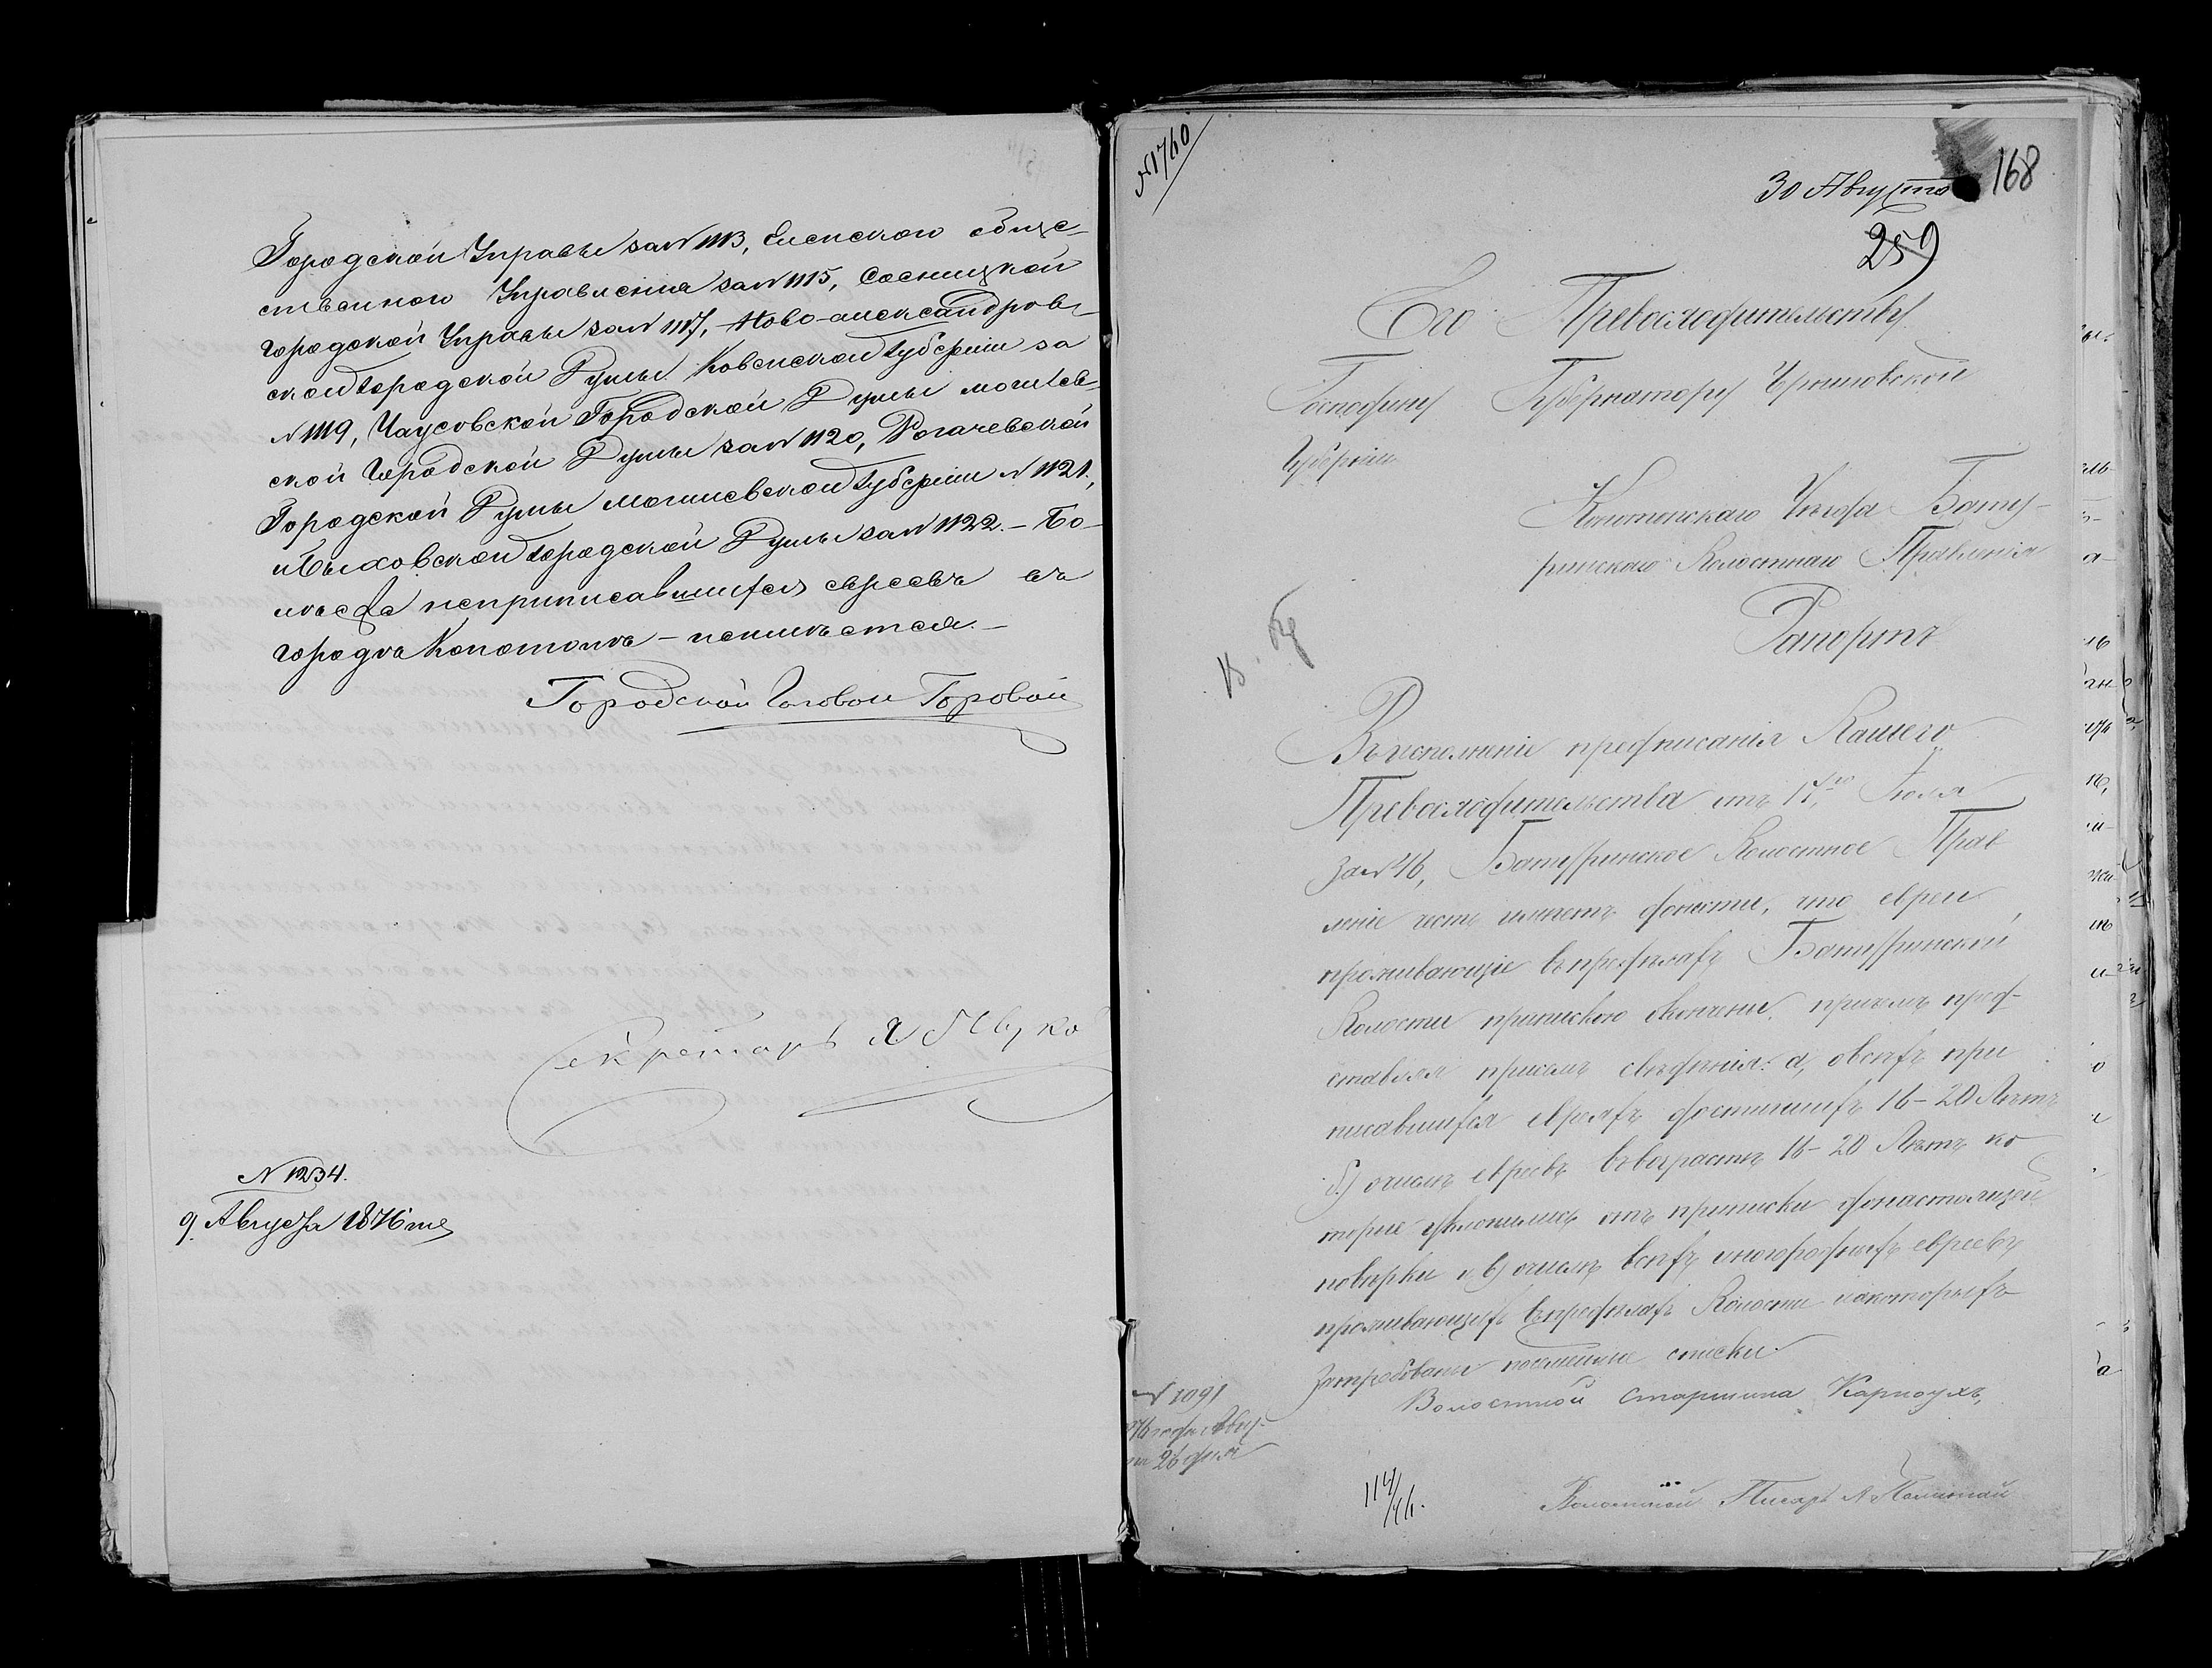 Городской Управы за N 1113, Еленскою обще-
ственного Управленія за N 1115, Сосницкой
городской Управы за N 1117, Ново-александров-
ской городской Думы Ковенской губерніи за
N 1119, Чаусовской Городской Думы могилев-
ской городской Думы за N 1120, Рогачевской
Городской Думы могилевской губерніи N 1121,
и Быховской городской Думы за N 1122. – Бо-
лѣе неприписавшихся евреевъ въ
городѣ Конотопѣ – неимѣется. –
Городской Голова Горовой
Секретарь
N 1234.
9 Августа 1876 года
N 1760
30 Августа
168
259
Его Превосходительству
Господину Губернатору Черниговской
Губерніи
Конотопскаго Уѣзда Бату-
ринскаго Волостнаго Правленія
Рапортъ
Въ исполненіе предписанія Вашего
Превосходительства отъ 17го Іюля
за N 46, Батуринское Волостное Прав
леніе честь имѣетъ донести, что евреи
проживающіе въ предѣлахъ Батуринской
Волости припискою окончены, причемъ пред-
ставляя присемъ свѣденія: а, о всѣхъ при
писавшихся евреяхъ достигшихъ 16–20 Лѣтъ
б) о числѣ евреевъ въ возрастѣ 16–20 Лѣтъ ко
торые уклонились отъ приписки до настоящей
повѣрки и в) о числѣ всѣхъ иногородныхъ евреевъ
проживающихъ въ предѣлахъ Волости и о которыхъ
затребованы посемейные списки.
Волостной Старшина Карпоухъ
N 1091
876 года Авгу-
ста 26 дня
114/46.
Волостной Писарь А